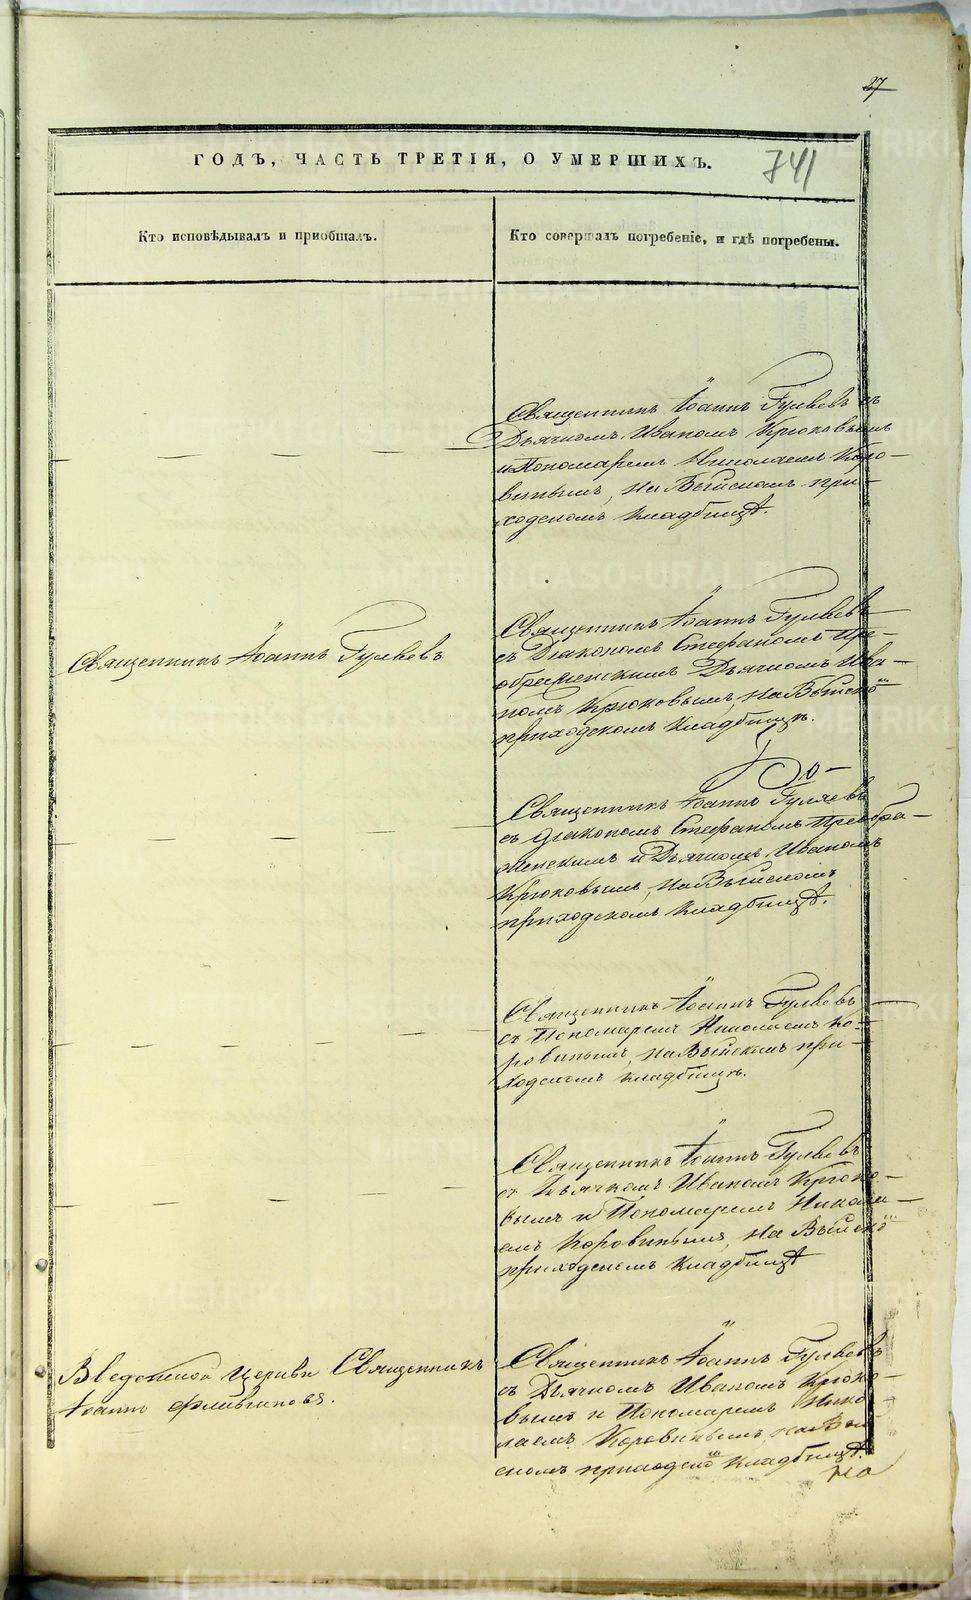 27
ГОДЪ, ЧАСТЬ ТРЕТІЯ, О УМЕРШИХЪ.
741
Кто исповѣдывалъ и пріобщалъ.
Кто совершалъ погребеніе, и гдѣ погребены.
Священникъ Іоаннъ Гуляевъ съ
Дьячкомъ Иваномъ Крюковымъ
и Пономаремъ Николаемъ Коро-
винымъ, на Выйскомъ при-
ходскомъ кладбищѣ.
Священникъ Іоаннъ Гуляевъ
Священникъ Іоаннъ Гуляевъ
съ Діакономъ Стефаномъ Пре-
ображенскимъ Дьячкомъ Ива-
номъ Крюковымъ, на Выйскомъ
приходскомъ кладбищѣ.
Священникъ Іоаннъ Гуляевъ
съ Діакономъ Стефаномъ Преобра-
женскимъ и Дьячкомъ Иваномъ
Крюковымъ, на Выйскомъ
приходскомъ кладбищѣ.
Священникъ Іоаннъ Гуляевъ
съ Пономаремъ Николаемъ Ко-
ровинымъ, на Выйскомъ при-
ходскомъ кладбищѣ.
Священникъ Іоаннъ Гуляевъ
съ Дьячкомъ Иваномъ Крюко-
вымъ и Пономаремъ Никола-
емъ Коровинымъ, на Выйскомъ
приходскомъ кладбищѣ
Введенской церкви Священникъ
Іоаннъ Флавіановъ.
Священникъ Іоаннъ Гуляевъ
съ Дьячкомъ Иваномъ Крюко-
вымъ и Пономаремъ Нико-
лаемъ Коровинымъ, на Вый-
скомъ приходскомъ кладбищѣ.
METRIKI.GASO-URAL.RU